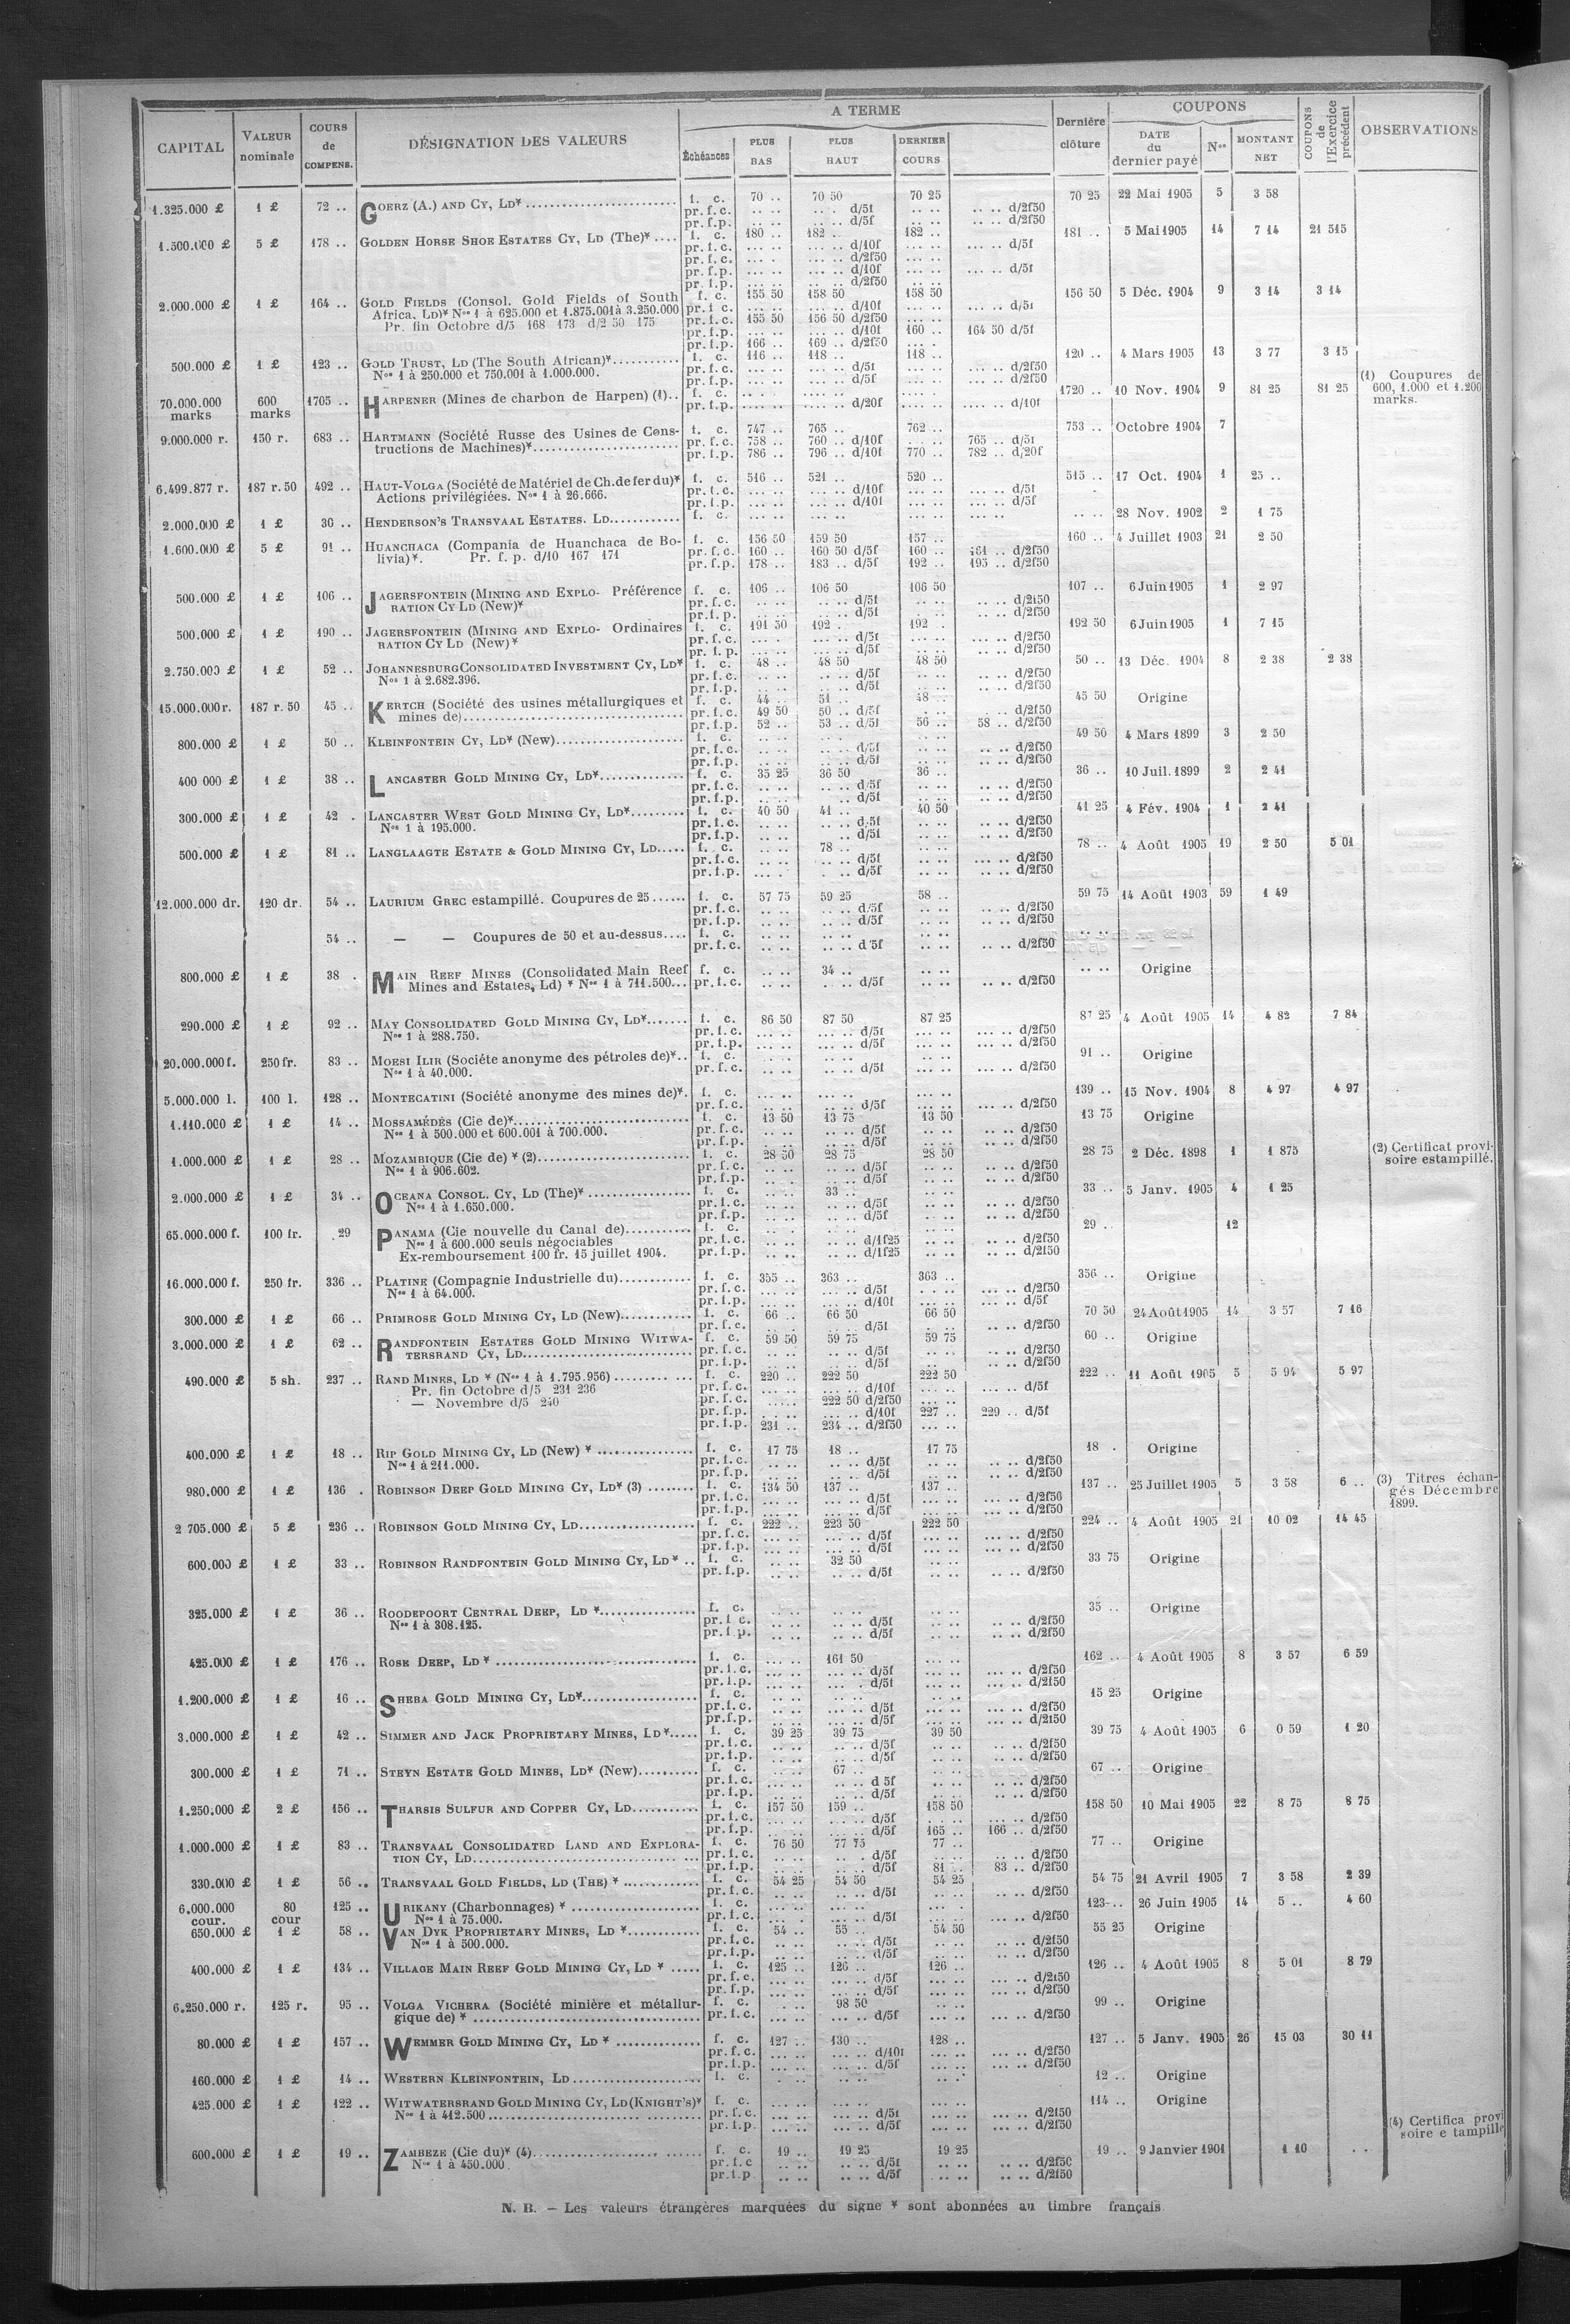 CAPITAL VALEUR nominale COURS de COMPENS. DÉSIGNATION DES VALEURS A TERME Échéances PLUS BAS PLUS HAUT DERNIER COURS Dernière clôture COUPONS DATE du dernier payé Nos MONTANT NET COUPONS de l'Exercice précédent OBSERVATIONS
1.325.000 £ 1 £ 72 .. GOERZ (A.) AND CY, LD* f. c. 70 .. 70 50 70 25 70 25 22 Mai 1905 5 3 58
pr. f. c. .. .. .. . d/5f .. .. .. .. d/2f50
pr. f. p. .. .. .. . d/5f .. .. .. .. d/2f50
1.500.000 £ 5 £ 178 .. GOLDEN HORSE SHOE ESTATES CY, LD (The)* .... f. c. 180 .. 182 .. 182 .. 181 .. 5 Mai 1905 14 7 14 21 515
pr. f. c. ... .. ... .. d/10f ... .. ... .. d/5f
pr. f. c. ... . ... .. d/2f50
pr. f. p. ... .. ... .. d/10f ... .. ... .. d/5f
pr. f. p. ... .. ... .. d/2f50
2.000.000 £ 1 £ 164 .. GOLD FIELDS (Consol. Gold Fields of South f. c. 155 50 158 50 158 50 156 50 5 Déc. 1904 9 3 14 3 14
Africa, Ld)* Nos 1 à 625.000 et 1.875.001 à 3.250.000 pr. f. c. ... .. ... .. d/10f ... .. ... .. d/5f
Pr. fin Octobre d/5 168 173 d/2 50 175 pr. f. c. 155 50 156 50 d/2f50
pr. f. p. ... .. ... .. d/10f 160 .. 164 50 d/5f
pr. f. p. 166 .. 169 .. d/2f50
500.000 £ 1 £ 123 .. GOLD TRUST, LD (The South African)* f. c. 116 .. 118 .. 118 .. 120 .. 4 Mars 1905 13 3 77 3 15
Nos 1 à 250.000 et 750.001 à 1.000.000. pr. f. c. ... .. d/5f d/2f50
pr. f. p. ... .. d/5f d/2f50
70.000.000 marks 600 marks 1705 .. HARPENER (Mines de charbon de Harpen) (1).. f. c. 1720 .. 10 Nov. 1904 9 81 25 81 25 (1) Coupures de 600, 1.000 et 1.200 marks.
pr. f. p. d/20f d/10f
9.000.000 r. 150 r. 683 .. HARTMANN (Société Russe des Usines de Cons- f. c. 747 .. 765 .. 762 .. 753 .. Octobre 1904 7
tructions de Machines)* pr. f. c. 758 .. 760 .. d/10f 765 .. d/5f
pr. f. p. 786 .. 796 .. d/10f 770 .. 782 .. d/20f
6.499.877 r. 187 r. 50 492 .. HAUT-VOLGA (Société de Matériel de Ch. de fer du)* f. c. 516 .. 521 .. 520 .. 515 .. 17 Oct. 1904 1 25 ..
Actions privilégiées. Nos 1 à 26.666. pr. f. c. d/10f d/5f
pr. f. p. d/10f d/5f
2.000.000 £ 1 £ 30 .. HENDERSON'S TRANSVAAL ESTATES. LD f. c. 28 Nov. 1902 2 1 75
1.600.000 £ 5 £ 91 .. HUANCHACA (Compania de Huanchaca de Bo- f. c. 156 50 159 50 157 .. 160 .. 4 Juillet 1903 21 2 50
livia)*. Pr. f. p. d/10 167 171 pr. f. c. 160 .. 160 50 d/5f 160 .. 161 .. d/2f50
pr. f. p. 178 .. 183 .. d/5f 192 .. 195 .. d/2f50
500.000 £ 1 £ 106 .. JAGERSFONTEIN (MINING AND EXPLO- Préférence f. c. 106 .. 106 50 106 50 107 .. 6 Juin 1905 1 2 97
RATION CY LD (New)* pr. f. c. d/5f d/2f50
pr. f. p. d/5f d/2f50
500.000 £ 1 £ 190 .. JAGERSFONTEIN (MINING AND EXPLO- Ordinaires f. c. 191 50 192 . 192 .. 192 50 6 Juin 1905 1 7 15
RATION CY LD (New)* pr. f. c. d/5f d/2f50
pr. f. p. d/5f d/2f50
2.750.000 £ 1 £ 52 .. JOHANNESBURG CONSOLIDATED INVESTMENT CY, LD* f. c. 48 .. 48 50 48 50 50 .. 13 Déc. 1904 8 2 38 2 38
Nos 1 à 2.682.396. pr. f. c. d/5f d/2f50
pr. f. p. d/5f d/2f50
15.000.000 r. 187 r. 50 45 .. KERTCH (Société des usines métallurgiques et f. c. 44 .. 51 .. 48 .. 45 50 Origine
mines de) pr. f. c. 49 50 50 .. d/5f d/2f50
pr. f. p. 52 .. 53 .. d/5f 56 .. 58 .. d/2f50
800.000 £ 1 £ 50 .. KLEINFONTEIN CY, LD* (New) f. c. 49 50 4 Mars 1899 3 2 50
pr. f. c. d/5f d/2f50
pr. f. p. d/5f d/2f50
400 000 £ 1 £ 38 .. LANCASTER GOLD MINING CY, LD* f. c. 35 25 36 50 36 .. 36 .. 10 Juil. 1899 2 2 41
pr. f. c. d/5f d/2f50
pr. f. p. d/5f d/2f50
300.000 £ 1 £ 42 . LANCASTER WEST GOLD MINING CY, LD* f. c. 40 50 41 .. 40 50 41 25 4 Fév. 1904 1 2 41
Nos 1 à 195.000. pr. f. c. d/5f d/2f50
pr. f. p. d/5f d/2f50
500.000 £ 1 £ 81 .. LANGLAAGTE ESTATE & GOLD MINING CY, LD f. c. 78 .. 78 .. 4 Août 1905 19 2 50 5 01
pr. f. c. d/5f d/2f50
pr. f. p. d/5f d/2f50
12.000.000 dr. 120 dr. 54 .. LAURIUM GREC estampillé. Coupures de 25 f. c. 57 75 59 25 58 .. 59 75 14 Août 1903 59 1 49
pr. f. c. d/5f d/2f50
pr. f. p. d/5f d/2f50
54 .. — — Coupures de 50 et au-dessus f. c.
pr. f. c. d/5f d/2f50
800.000 £ 1 £ 38 . MAIN REEF MINES (Consolidated Main Reef f. c. 34 .. Origine
Mines and Estates, Ld) * Nos 1 à 711.500 pr. f. c. d/5f d/2f50
290.000 £ 1 £ 92 .. MAY CONSOLIDATED GOLD MINING CY, LD* f. c. 86 50 87 50 87 25 87 25 4 Août 1905 14 4 82 7 84
Nos 1 à 288.750. pr. f. c. d/5f d/2f50
pr. f. p. d/5f d/2f50
20.000.000 f. 250 fr. 83 .. MOESI ILIR (Sociéte anonyme des pétroles de)* f. c. 91 .. Origine
Nos 1 à 40.000. pr. f. c. d/5f d/2f50
5.000.000 l. 100 l. 128 .. MONTECATINI (Société anonyme des mines de)*. f. c. 139 .. 15 Nov. 1904 8 4 97 4 97
pr. f. c. d/5f d/2f50
1.110.000 £ 1 £ 14 .. MOSSAMÉDÈS (Cie de)* f. c. 13 50 13 75 13 50 13 75 Origine
Nos 1 à 500.000 et 600.001 à 700.000. pr. f. c. d/5f d/2f50
pr. f. p. d/5f d/2f50
1.000.000 £ 1 £ 28 .. MOZAMBIQUE (Cie de) * (2) f. c. 28 50 28 75 28 50 28 75 2 Déc. 1898 1 1 875 (2) Certificat provi-soire estampillé.
Nos 1 à 906.602. pr. f. c. d/5f d/2f50
pr. f. p. d/5f d/2f50
2.000.000 £ 1 £ 34 .. OCEANA CONSOL. CY, LD (The)* f. c. 33 .. 33 .. 5 Janv. 1905 4 1 25
Nos 1 à 1.650.000. pr. f. c. d/5f d/2f50
pr. f. p. d/5f d/2f50
65.000.000 f. 100 fr. 29 PANAMA (Cie nouvelle du Canal de) f. c. 29 .. 12
Nos 1 à 600.000 seuls négociables pr. f. c. d/1f25 d/2f50
Ex-remboursement 100 fr. 15 juillet 1904. pr. f. p. d/1f25 d/2f50
16.000.000 f. 250 fr. 336 .. PLATINE (Compagnie Industrielle du) f. c. 355 .. 363 .. 363 .. 356 .. Origine
Nos 1 à 64.000. pr. f. c. d/5f d/2f50
pr. f. p. d/10f d/5f
300.000 £ 1 £ 66 .. PRIMROSE GOLD MINING CY, LD (New) f. c. 66 .. 66 50 66 50 70 50 24 Août 1905 14 3 57 7 16
pr. f. c. d/5f d/2f50
3.000.000 £ 1 £ 62 .. RANDFONTEIN ESTATES GOLD MINING WITWA- f. c. 59 50 59 75 59 75 60 .. Origine
TERSRAND CY, LD pr. f. c. d/5f d/2f50
pr. f. p. d/5f d/2f50
490.000 £ 5 sh. 237 .. RAND MINES, LD * (Nos 1 à 1.795.956) f. c. 220 .. 222 50 222 50 222 .. 11 Août 1905 5 5 94 5 97
Pr. fin Octobre d/5 231 236 pr. f. c. d/10f d/5f
— Novembre d/5 240 pr. f. c. 222 50 d/2f50
pr. f. p. d/10f 227 .. 229 .. d/5f
pr. f. p. 231 .. 234 .. d/2f50
400.000 £ 1 £ 18 .. RIP GOLD MINING CY, LD (New) * f. c. 17 75 18 .. 17 75 18 . Origine
Nos 1 à 211.000. pr. f. c. d/5f d/2f50
pr. f. p. d/5f d/2f50
980.000 £ 1 £ 136 . ROBINSON DEEP GOLD MINING CY, LD* (3) f. c. 134 50 137 .. 137 .. 137 .. 25 Juillet 1905 5 3 58 6 .. (3) Titres échan-gés Décembre 1899.
pr. f. c. d/5f d/2f50
pr. f. p. d/5f d/2f50
2 705.000 £ 5 £ 236 .. ROBINSON GOLD MINING CY, LD f. c. 222 .. 223 50 222 50 224 .. 4 Août 1905 21 10 02 14 45
pr. f. c. d/5f d/2f50
pr. f. p. d/5f d/2f50
600.000 £ 1 £ 33 .. ROBINSON RANDFONTEIN GOLD MINING CY, LD * .. f. c. 32 50 33 75 Origine
pr. f. p. d/5f d/2f50
325.000 £ 1 £ 36 .. ROODEPOORT CENTRAL DEEP, LD * f. c. 35 .. Origine
Nos 1 à 308.125. pr. f. c. d/5f d/2f50
pr. f. p. d/5f d/2f50
425.000 £ 1 £ 176 .. ROSE DEEP, LD * f. c. 161 50 162 .. 4 Août 1905 8 3 57 6 59
pr. f. c. d/5f d/2f50
pr. f. p. d/5f d/2f50
1.200.000 £ 1 £ 16 .. SHEBA GOLD MINING CY, LD* f. c. 15 25 Origine
pr. f. c. d/5f d/2f50
pr. f. p. d/5f d/2f50
3.000.000 £ 1 £ 42 .. SIMMER AND JACK PROPRIETARY MINES, LD* f. c. 39 25 39 75 39 50 39 75 4 Août 1905 6 0 59 1 20
pr. f. c. d/5f d/2f50
pr. f. p. d/5f d/2f50
300.000 £ 1 £ 71 .. STEYN ESTATE GOLD MINES, LD* (New) f. c. 67 .. 67 .. Origine
pr. f. c. d 5f d/2f50
pr. f. p. d/5f d/2f50
1.250.000 £ 2 £ 156 .. THARSIS SULFUR AND COPPER CY, LD f. c. 157 50 159 .. 158 50 158 50 10 Mai 1905 22 8 75 8 75
pr. f. c. d/5f d/2f50
pr. f. p. d/5f 165 .. 166 .. d/2f50
1.000.000 £ 1 £ 83 .. TRANSVAAL CONSOLIDATED LAND AND EXPLORA- f. c. 76 50 77 75 77 .. 77 .. Origine
TION CY, LD pr. f. c. d/5f d/2f50
pr. f. p. d/5f 81 .. 83 .. d/2f50
330.000 £ 1 £ 56 .. TRANSVAAL GOLD FIELDS, LD (THE) * f. c. 54 25 54 50 54 25 54 75 21 Avril 1905 7 3 58 2 39
pr. f. c. d/5f d/2f50
6.000.000 cour. 80 cour 125 .. URIKANY (Charbonnages) * f. c. 123 .. 26 Juin 1905 14 5 .. 4 60
Nos 1 à 75.000. pr. f. c. d/5f d/2f50
650.000 £ 1 £ 58 .. VAN DYK PROPRIETARY MINES, LD * f. c. 54 .. 55 .. 54 50 55 25 Origine
Nos 1 à 500.000. pr. f. c. d/5f d/2f50
pr. f. p. d/5f d/2f50
400.000 £ 1 £ 134 .. VILLAGE MAIN REEF GOLD MINING CY, LD * f. c. 125 .. 126 .. 126 .. 126 .. 4 Août 1905 8 5 01 8 79
pr. f. c. d/5f d/2f50
pr. f. p. d/5f d/2f50
6.250.000 r. 125 r. 95 .. VOLGA VICHERA (Société minière et métallur- f. c. 98 50 99 .. Origine
gique de) * pr. f. c. d/5f d/2f50
80.000 £ 1 £ 157 .. WEMMER GOLD MINING CY, LD * f. c. 127 .. 130 .. 128 .. 127 .. 5 Janv. 1905 26 15 03 30 11
pr. f. c. d/10f d/2f50
pr. f. p. d/5f d/2f50
160.000 £ 1 £ 14 .. WESTERN KLEINFONTEIN, LD f. c. 12 .. Origine
425.000 £ 1 £ 122 .. WITWATERSRAND GOLD MINING CY, LD (KNIGHT'S)* f. c. 114 .. Origine
Nos 1 à 412.500 pr. f. c. d/5f d/2f50
pr. f. p. d/5f d/2f50
600.000 £ 1 £ 19 .. ZAMBEZE (Cie du)* (4) f. c. 19 .. 19 25 19 25 19 .. 9 Janvier 1901 1 10 (4) Certifica provi soire e tampillé
Nos 1 à 450.000 pr. f. c d/5f d/2f50
pr. f. p. d/5f d/2f50
N. B. — Les valeurs étrangères marquées du signe * sont abonnées au timbre français